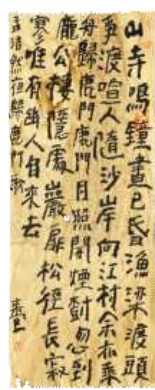 山寺鳴鐘晝已昏漁梁渡頭
爭渡喧人隨沙岸向江村余亦乘
舟歸鹿門鹿門月照開煙樹忽到
龐公棲隱處巖扉松徑長寂
寥唯有幽人自來去
孟浩然夜歸鹿門歌